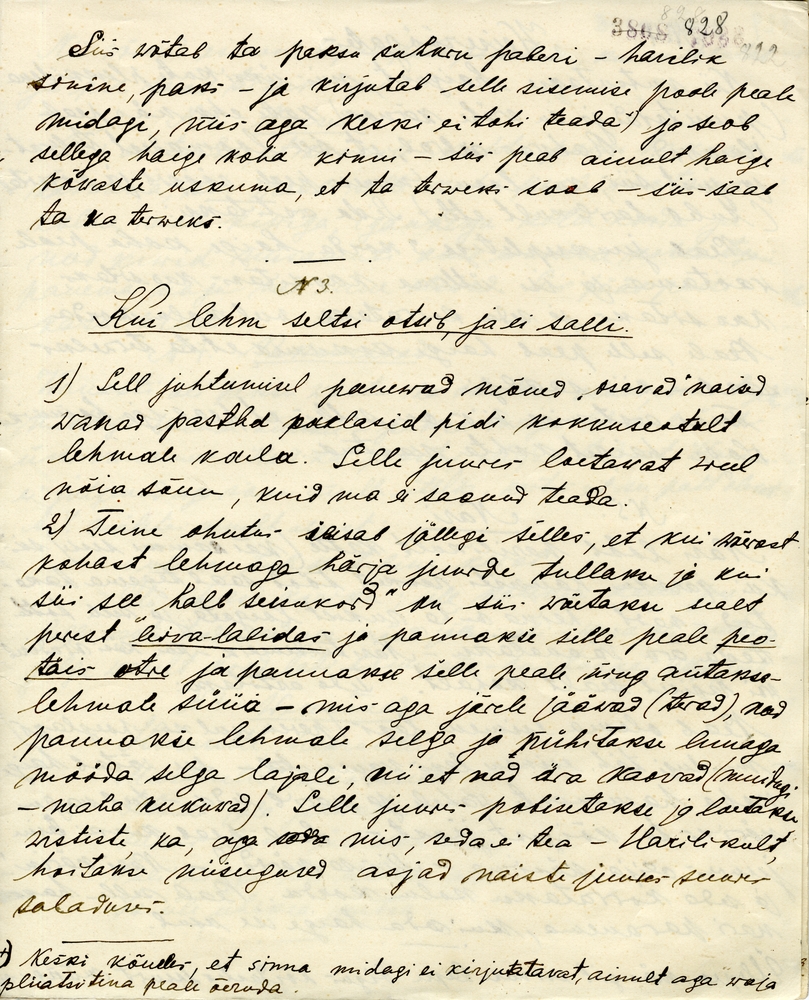 828
3808
Siis wõtab ta paksu suhkru paberi – harilik
sinine, paks – ja kirjutab selle sisemise poole peale
midagi, mis aga keski ei tohi teada†) ja seob
sellega haige koha kinni – siis peab ainult haige
kõwaste uskuma, et ta terweks saab – siis saab
ta ka terweks.
N 3.
Kui lehm seltsi otsib, ja ei salli.
1) Sell juhtumisel panewad mõned „osavad" naised
wanad pastlad paelasid pidi kokkuseotult
lehmale kaela. Selle juures loetawat weel
nõia sõnu, kuid ma ei saanud teada.
2) Teine ohutus seisab jällegi selles, et kui wõerast
kohast lehmaga härja juurde tullakse ja kui
siis see „halb seisukord" on, siis wõetakse sealt
perest leiva-labidas ja pannakse selle peale peo-
täis otre ja pannakse selle peale ning antakse
lehmale süüa – mis aga järele jääwad (terad), nad
pannakse lehmale selga ja pühitakse luuaga
mööda selga lajali, nii et nad ära kaovad (muidugi
– maha kukuwad). Selle juures pobisetakse ja loetakse
wististe, ka, aga mis, seda ei tea – Harilikult,
hoitakse niisugused asjad naiste juures suures
saladuses.
†) Keski kõneles, et sinna midagi ei kirjutatavat, ainult aga waja
pliiatsi tina peale õeruda.